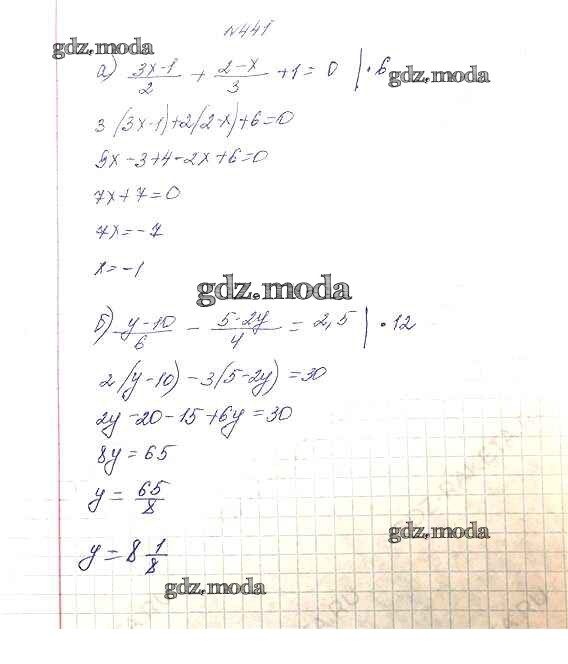 №441
gdz.moda
а) (3x-1)/2 + (2-x)/3 + 1 = 0 | · 6
gdz.moda
3(3x-1)+2(2-x)+6=0
9x-3+4-2x+6=0
7x+7=0
7x=-7
x=-1
gdz.moda
б) (y-10)/6 - (5-2y)/4 = 2,5 | · 12
2(y-10)-3(5-2y)=30
2y-20-15+6y=30
8y=65
y = 65/8
gdz.moda
y = 8 1/8
gdz.moda